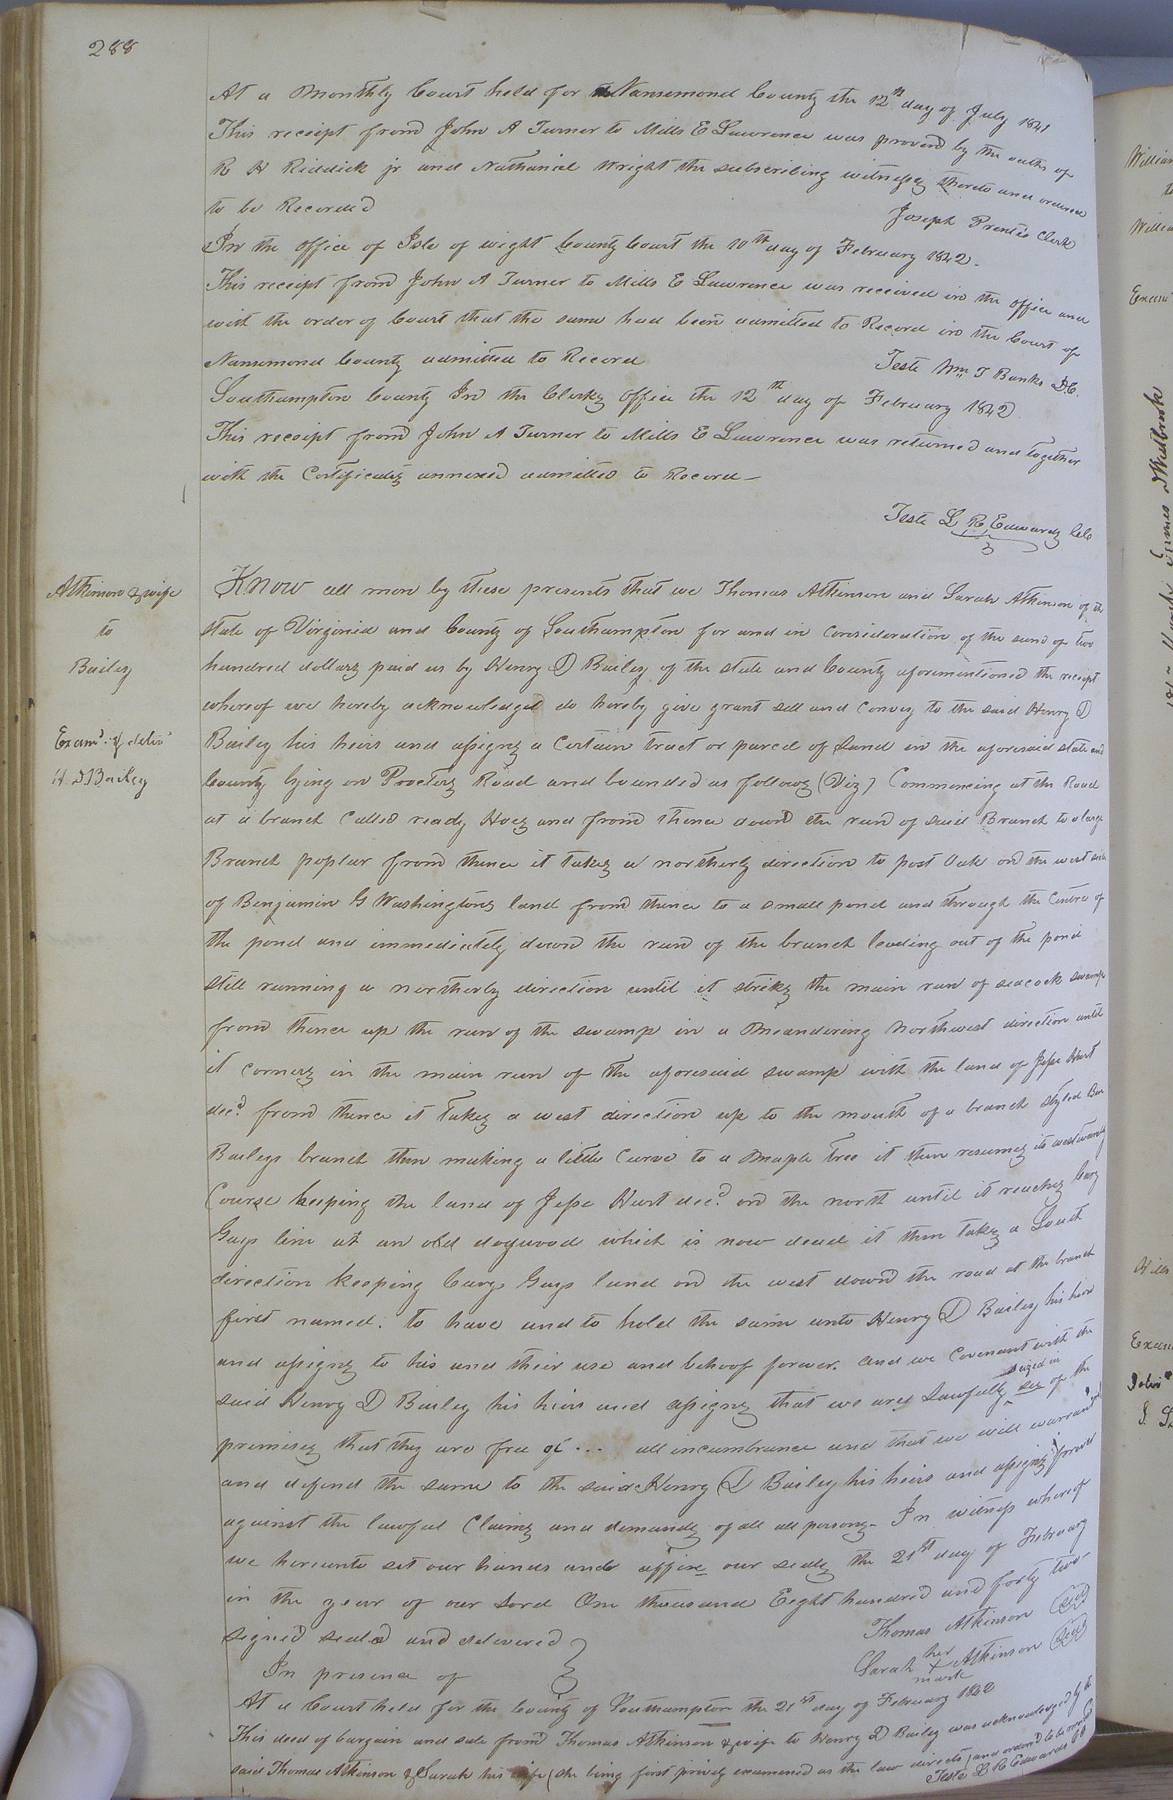 288
At a Monthly Court held for Nansemond County the 12th day of July 1841
This receipt from John A Turner to Mills E Lawrence was proved by the oaths of
R H Riddick jr and Nathaniel Wright the subscribing witnesses thereto and ordered
to be Recorded
Joseph Prentis Clerk
In the office of Isle of wight County Court the 10th day of February 1842.
This receipt from John A Turner to Mills E Lawrence was received in the office and
with the order of Court that the same had been admitted to Record in the Court of
Nansemond County admitted to Record
Teste Wm T Banks D.C.
Southampton County In the Clerks Office the 12th day of February 1842
This receipt from John A Turner to Mills E Lawrence was returned and together
with the Certificates annexed admitted to Record—
Teste L R Edwards
Atkinson & wife
to
Bailey
Examd. & delivd
H. D Bailey
Know all men by these presents that we Thomas Atkinson and Sarah Atkinson of the
state of Virginia and County of Southampton for and in consideration of the sum of two
hundred dollars paid us by Henry D Bailey of the state and County aforementioned the receipt
whereof we hereby acknowledged do hereby give grant sell and convey to the said Henry D
Bailey his heirs and assigns a Certain tract or parcel of Land in the aforesaid state and
County lying on Proctors Road and bounded as follows (Viz) Commencing at the Road
at a branch Called ready and from thence down the run of said Branch to a large
Branch poplar from thence it takes a northerly direction to post Oak on the west side
of Benjamin G Washingtons land from thence to a small pond and through the Centre of
the pond and immediately down the run of the branch leading out of the pond
still running a northerly direction until it strikes the main run of seacock swamp
from thence up the run of the swamp in a Meandering Northwest direction until
it corners in the main run of the aforesaid swamp with the land of Jesse Hart
decd. from thence it takes a west direction up to the mouth of a branch styled
Baileys branch then making a little Curve to a Maple tree it then resumes its westwardly
Course keeping the land of Jesse Hart decd. on the north until it reaches
Gays line at an old dogwood which is now dead it then takes a South
direction keeping Gays land on the west down the road at the branch
first named. to have and to hold the same unto Henry D Bailey his heirs
and assigns to his and their use and behoof forever. and we Covenant with the
said Henry D Bailey his heirs and assigns that we are Lawfully seized in of the
premises that they are free of ... all incumbrance and that we will warrant
and defend the same to the said Henry D Bailey his heirs and assigns forever
against the lawful Claims and demands of all all persons— In witness whereof
we hereunto set our hands and affixe our seals the 21st day of February
in the year of our Lord One thousand Eight hundred and forty two
Thomas Atkinson (seal)
signed sealed and delivered }
Sarah her + mark Atkinson (seal)
In presence of
At a Court held for the County of Southampton the 21st day of February 1842
This deed of bargain and sale from Thomas Atkinson & wife to Henry D Bailey was acknowledged by the
said Thomas Atkinson & Sarah his wife (she being first privily examined as the law directs) and ordered to be recorded
Teste L R Edwards
William
William
Exam